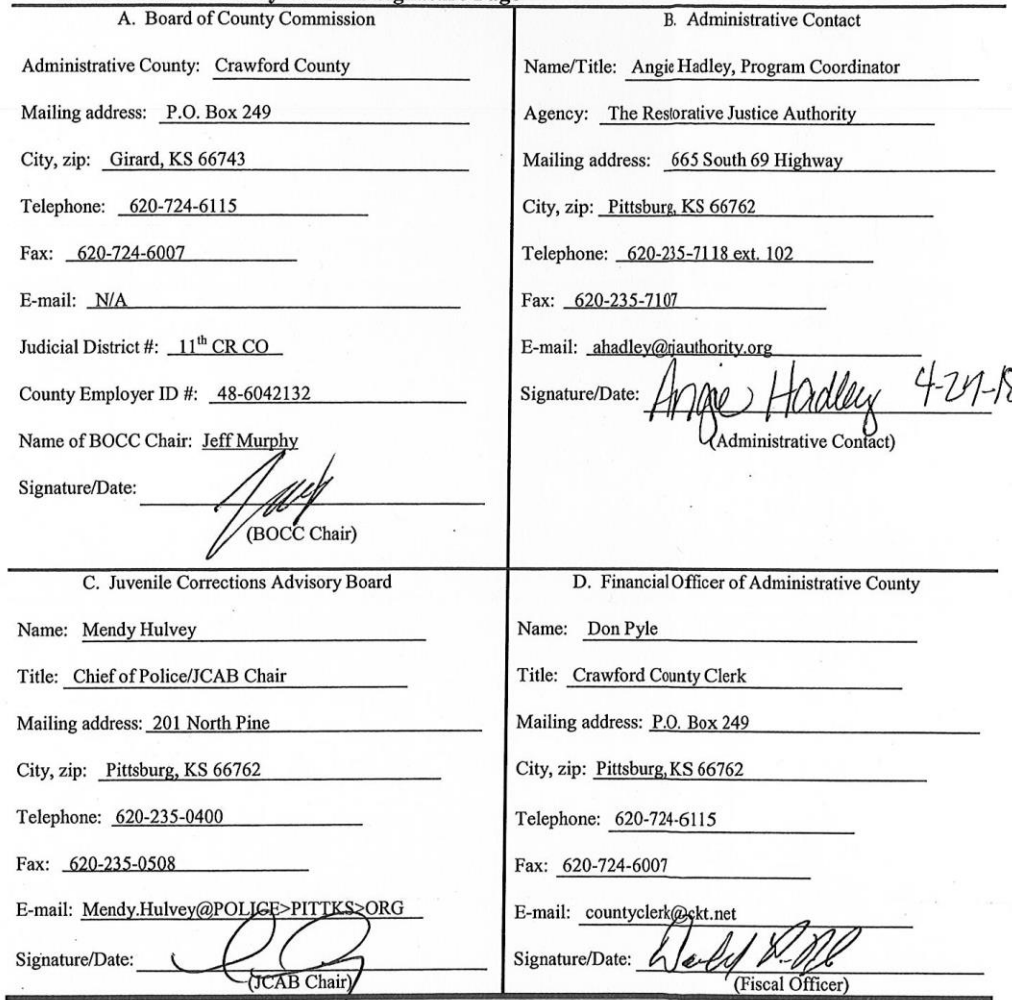 A. Board of County Commission
Administrative County: Crawford County
Mailing address: P.O. Box 249
City, zip: Girard, KS 66743
Telephone: 620-724-6115
Fax: 620-724-6007
E-mail: N/A
Judicial District #: 11th CR CO
County Employer ID #: 48-6042132
Name of BOCC Chair: Jeff Murphy
Signature/Date:
(BOCC Chair)
B. Administrative Contact
Name/Title: Angie Hadley, Program Coordinator
Agency: The Restorative Justice Authority
Mailing address: 665 South 69 Highway
City, zip: Pittsburg, KS 66762
Telephone: 620-235-7118 ext. 102
Fax: 620-235-7107
E-mail: ahadley@rjauthority.org
Signature/Date: Angie Hadley
(Administrative Contact)
C. Juvenile Corrections Advisory Board
Name: Mendy Hulvey
Title: Chief of Police/JCAB Chair
Mailing address: 201 North Pine
City, zip: Pittsburg, KS 66762
Telephone: 620-235-0400
Fax: 620-235-0508
E-mail: Mendy.Hulvey@POLICE>PITTKS>ORG
Signature/Date:
(JCAB Chair)
D. Financial Officer of Administrative County
Name: Don Pyle
Title: Crawford County Clerk
Mailing address: P.O. Box 249
City, zip: Pittsburg, KS 66762
Telephone: 620-724-6115
Fax: 620-724-6007
E-mail: countyclerk@ckt.net
Signature/Date:
(Fiscal Officer)